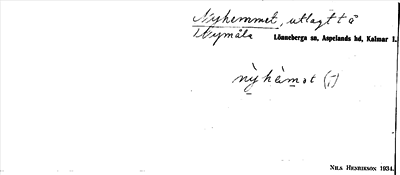 Nyhemmet, utlagt å
Nymåla Lönneberga sn, Aspelands hd, Kalmar l.
nỳhàmət (,-)
NILS HENRIKSON 1934.